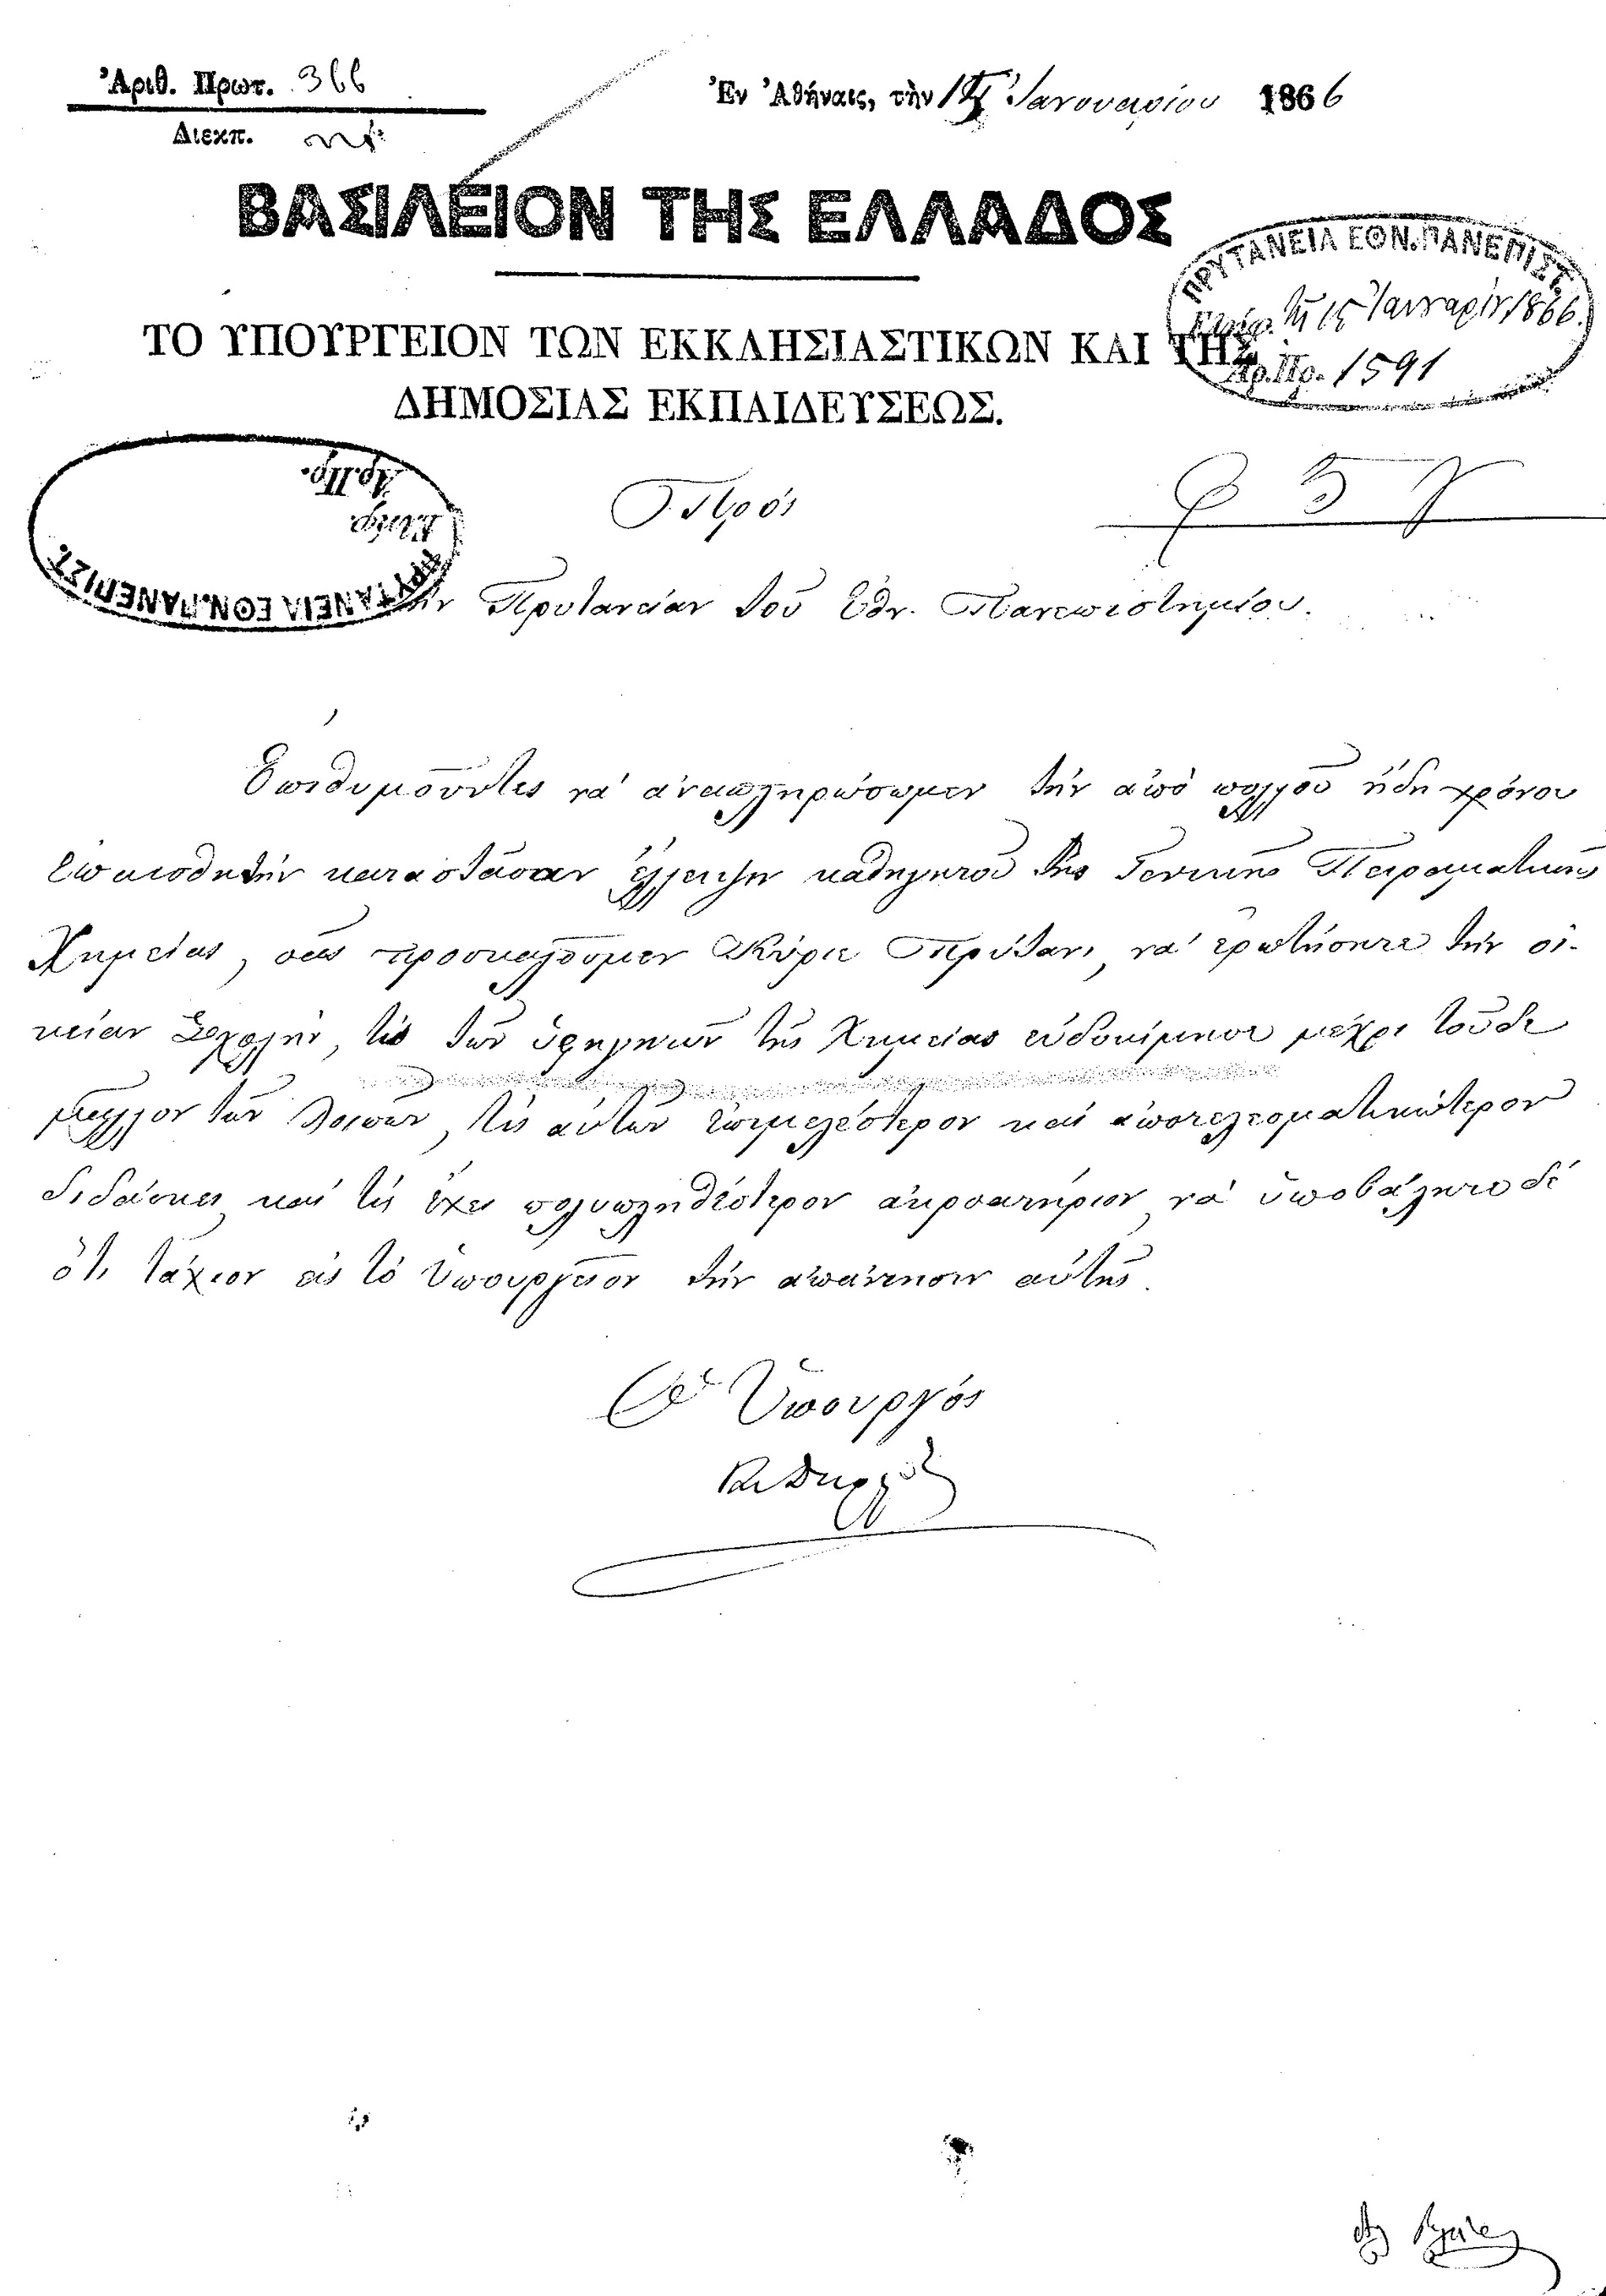 Ἀριθ. Πρωτ. 366
Διεκπ.
Ἐν Ἀθήναις, τὴν Ἰανουαρίου 1866
ΒΑΣΙΛΕΙΟΝ ΤΗΣ ΕΛΛΑΔΟΣ
ΤΟ ΥΠΟΥΡΓΕΙΟΝ ΤΩΝ ΕΚΚΛΗΣΙΑΣΤΙΚΩΝ ΚΑΙ ΤΗΣ
ΔΗΜΟΣΙΑΣ ΕΚΠΑΙΔΕΥΣΕΩΣ.
ΠΡΥΤΑΝΕΙΑ ΕΘΝ. ΠΑΝΕΠΙΣΤ.
τῇ 15 Ἰανναρίου 1866.
Ἀρ. Πρ. 1591
Ἀρ. Πρ.
ΠΡΥΤΑΝΕΙΑ ΕΘΝ. ΠΑΝΕΠΙΣΤ.
Πρός
τὴν Πρυτανείαν τοῦ Ἐθν. Πανεπιστημίου.
Ἐπιθυμοῦντες νὰ ἀναπληρώσωμεν τὴν ἀπὸ πολλοῦ ἤδη χρόνου
ἐπαισθητὴν καταστᾶσαν ἔλλειψιν καθηγητοῦ τῆς Γενικῆς Πειραματικῆς
Χημείας, σᾶς προσκαλοῦμεν Κύριε Πρύτανι, νὰ ἐρωτήσητε τὴν οἰ-
κείαν Σχολὴν, τίς τῶν ὑφηγητῶν τῆς Χημείας εὐδοκίμησε μέχρι τοῦδε
μᾶλλον τῶν λοιπῶν, τίς αὐτῶν ἐπιμελέστερον καὶ ἀποτελεσματικώτερον
διδάσκει καὶ τίς ἔχει πολυπληθέστερον ἀκροατήριον, νὰ ὑποβάλητε δὲ
ὅτι τάχιον εἰς τὸ Ὑπουργεῖον τὴν ἀπάντησιν αὐτῆς.
Ὁ Ὑπουργός